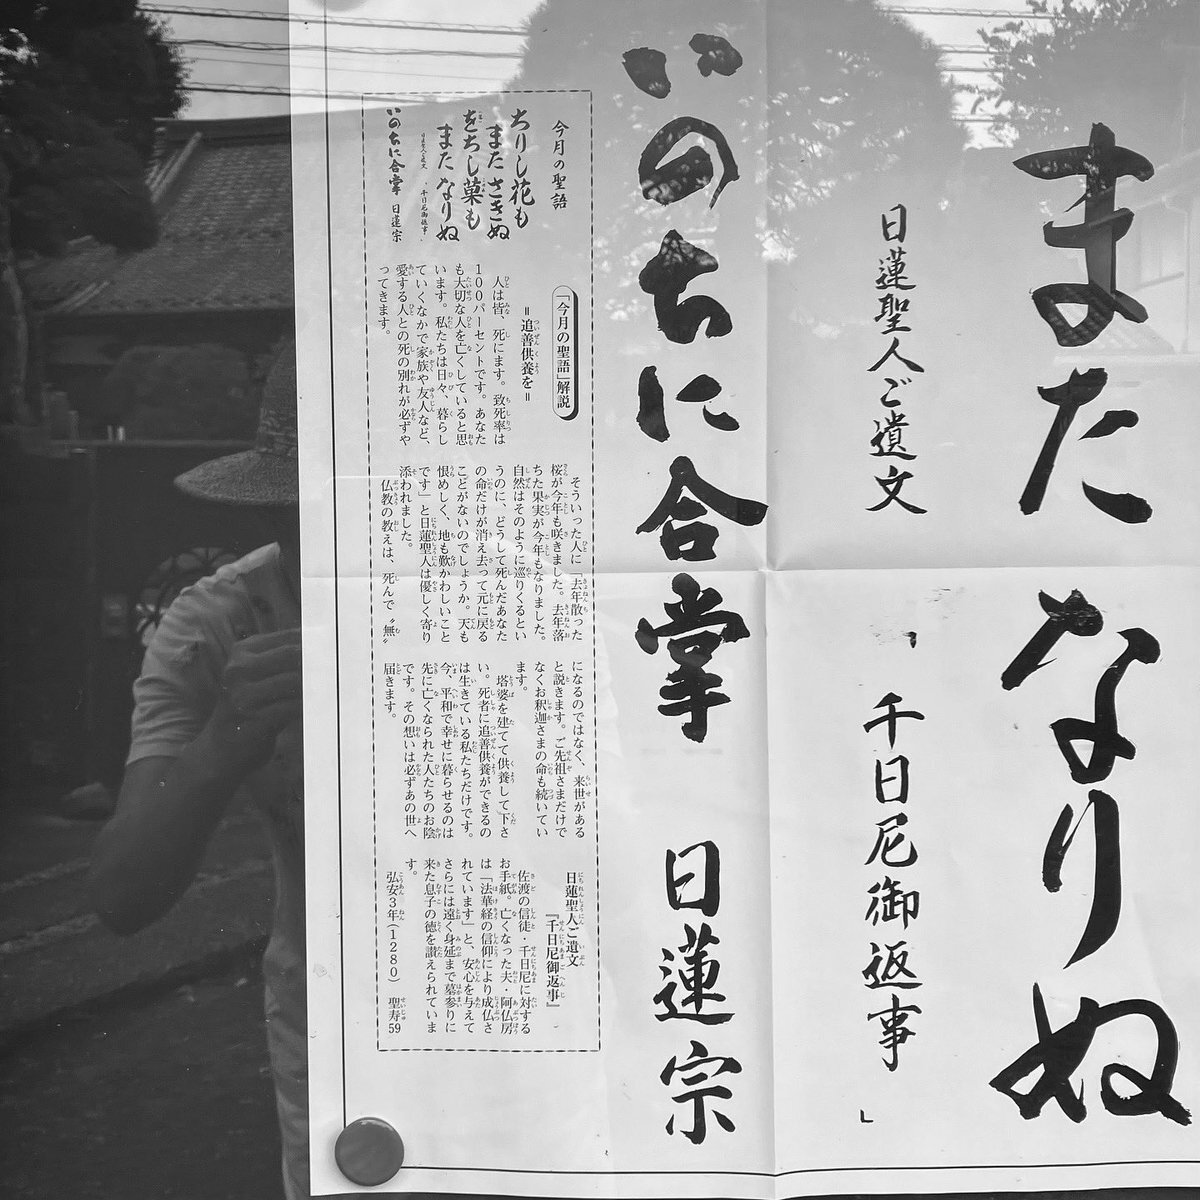 また なりぬ
日蓮聖人ご遺文
「千日尼御返事」
いのちに合掌 日蓮宗
今月の聖語
ちりし花も
また さきぬ
をちし菓も
また なりぬ
日蓮聖人ご遺文 「千日尼御返事」
いのちに合掌 日蓮宗
「今月の聖語」解説
＝追善供養を＝
人は皆、死にます。致死率は
100パーセントです。あなた
も大切な人を亡くしていると思
います。私たちは日々、暮らし
ていくなかで家族や友人など、
愛する人との死の別れが必ずや
ってきます。
そういった人に「去年散った
桜が今年も咲きました。去年落
ちた果実が今年もなりました。
自然はそのように巡りくるとい
うのに、どうして死んだあなた
の命だけが消え去って元に戻る
ことがないのでしょうか。天も
恨めしく、地も歎かわしいこと
です」と日蓮聖人は優しく寄り
添われました。
仏教の教えは、死んで〝無〟
になるのではなく、来世がある
と説きます。ご先祖さまだけで
なくお釈迦さまの命も続いてい
ます。
塔婆を建てて供養して下さ
い。死者に追善供養ができるの
は生きている私たちだけです。
今、平和で幸せに暮らせるのは
先に亡くなられた人たちのお陰
です。その想いは必ずあの世へ
届きます。
日蓮聖人ご遺文
『千日尼御返事』
佐渡の信徒・千日尼に対する
お手紙。亡くなった夫・阿仏房
は「法華経の信仰により成仏さ
れています」と、安心を与えて
さらには遠く身延まで墓参りに
来た息子の徳を讃えられていま
す。
弘安3年（1280） 聖寿59